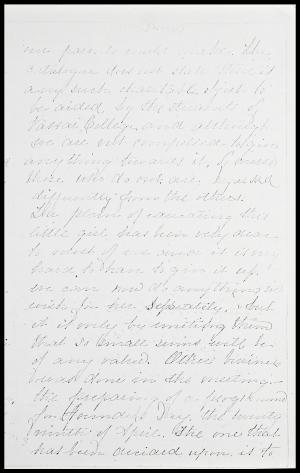 our parents must make. The
Catalogue does not state there is
any such charitable object to
be aided by the students of
Vassar College, and although
we are not compelled to give
anything towards it, of course
those who do not are regarded
differently from the others.
The plan of educating this
little girl has been very dear
to most of us and it is very
hard to have to give it up.
we can now do anything we
wish for her separately, but
it is only by uniting them
that so small sums will be
of any value. Other business
was done in the meeting
the preparing of a programme
for Founder's Day, the twenty
ninth of April. The one that
has been decided upon is to